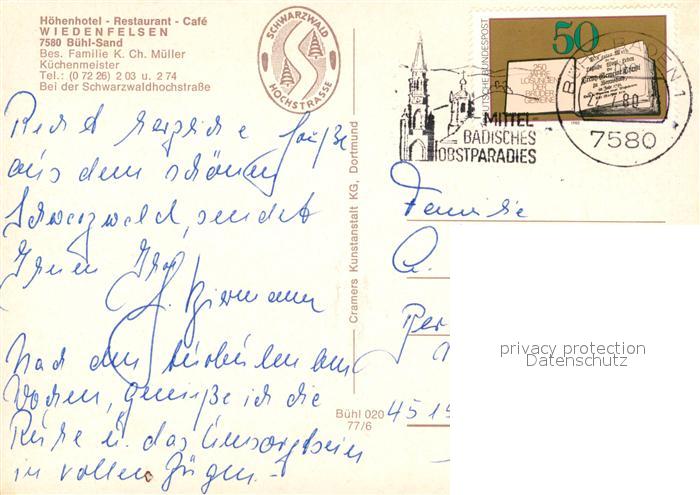 Höhenhotel - Restaurant - Café
WIEDENFELSEN
7580 Bühl-Sand
Bes. Familie K. Ch. Müller
Küchenmeister
Tel.: (0 72 26) 2 03 u. 2 74
Bei der Schwarzwaldhochstraße
SCHWARZWALD
HOCHSTRASSE
Recht herzliche Grüße
aus dem schönen
Schwarzwald, sendet
Ihnen Ihre
Biermann
Nach den turbulenten
Wochen, genieße ich die
Ruhe u. das Umsorgtsein
in vollen Zügen.-
Cramers Kunstanstalt KG, Dortmund
Bühl 020
77/6
DEUTSCHE BUNDESPOST
50
250
JAHRE
LOSUNGEN
DER
BRÜDER
GEMEINE
MITTEL
BADISCHES
OBSTPARADIES
BÜHL, BADEN 1
80
7580
Familie
privacy protection
Datenschutz